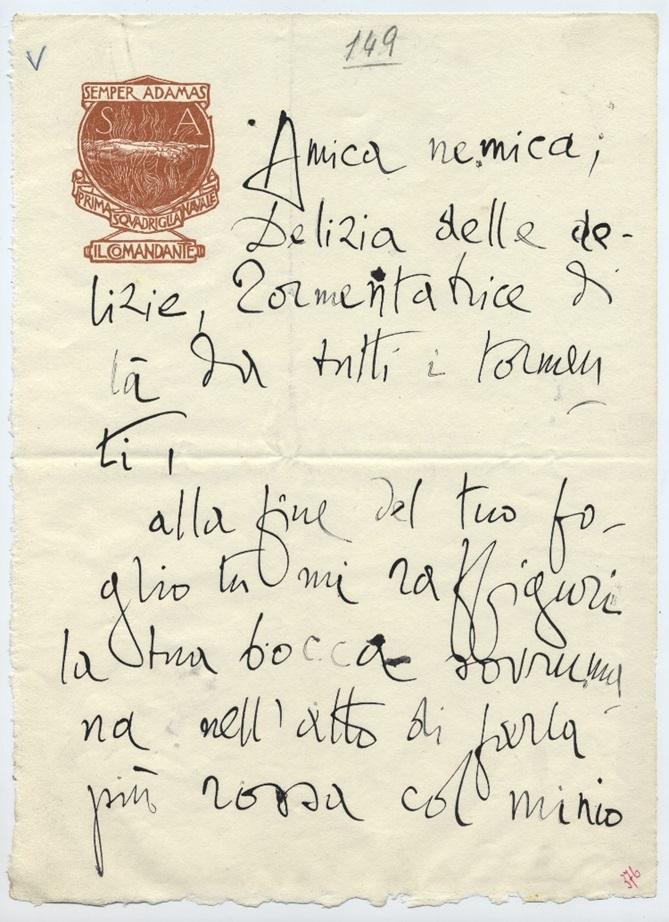 149
SEMPER ADAMAS
S A
PRIMA SQVADRIGLIA NAVALE
IL COMANDANTE
Amica nemica;
Delizia delle de-
lizie, Tormentatrice di
là da tutti i tormen
ti,
alla fine del tuo fo-
glio tu mi raffiguri
la tua bocca sovruma
na nell'atto di farla
più rossa col minio
376